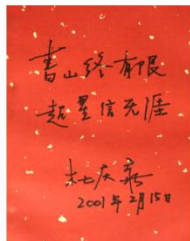 書山终有限
超星信无涯
杜庆春
2001年2月15日